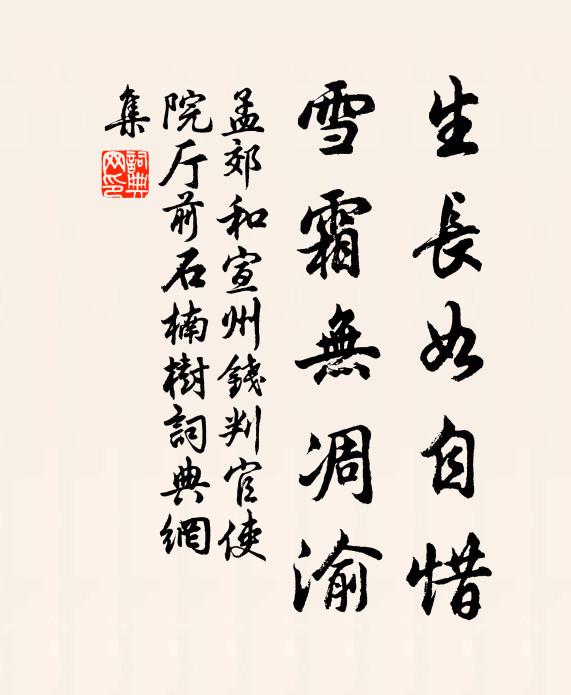 生長如自惜
雪霜無凋渝
孟郊和宣州錢判官使
院厅前石楠樹詞典網
集
詞典
网印